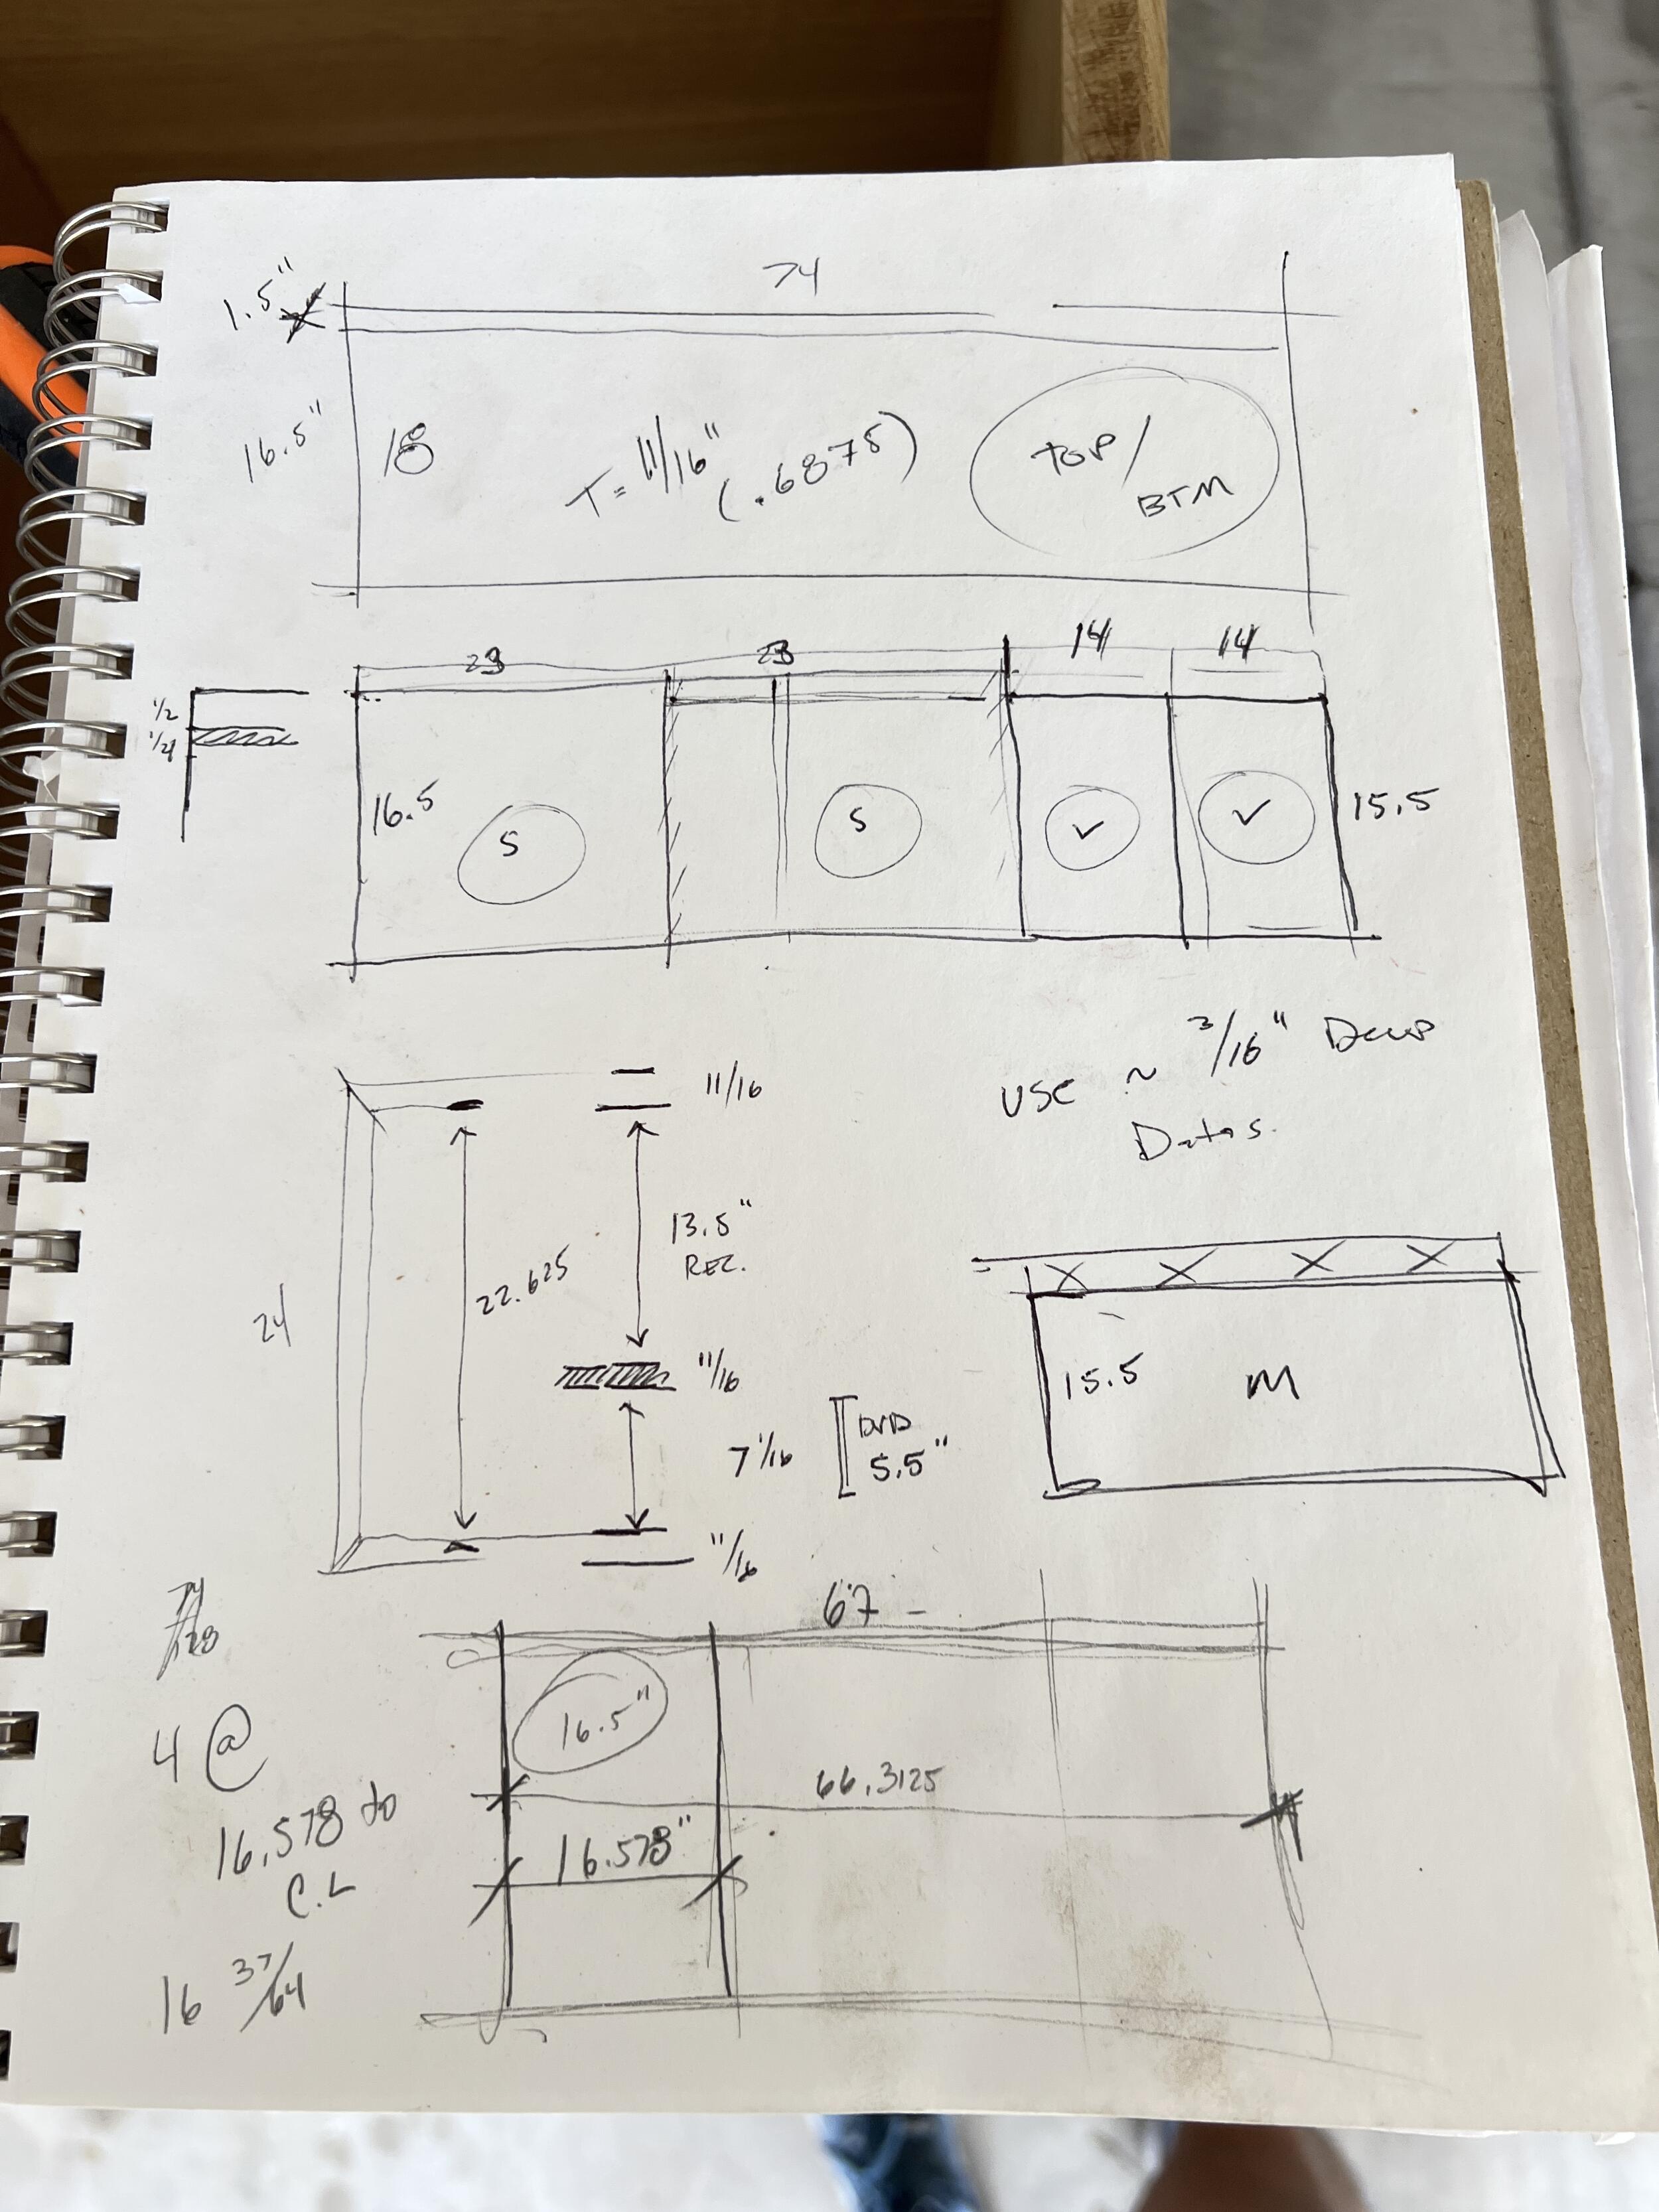 74
1.5"
16.5"
18
T= 11/16"
(.6875)
TOP/
BTM
23
23
14
14
1/2
1/4
16.5
S
S
V
V
15.5
USE ~ 3/16" Deep
Datos.
11/16
13.5"
REC.
22.625
24
11/16
7 1/16
DVD
5.5"
11/16
15.5
M
67
4 @
16.578 to
C.L
16 37/64
16.5"
66.3125
16.578"